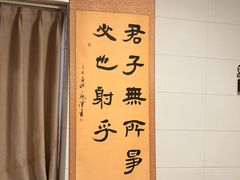 君子無所爭
必也射乎